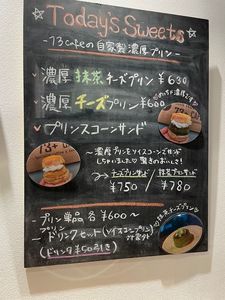 ☆ Today's Sweets ☆
-73cafeの自家製濃厚プリン-
✓濃厚抹茶チーズプリン ¥630
✓濃厚チーズプリン ¥600
✓プリンスコーンサンド
～濃厚プリンをソイスコーンズサンド
しちゃいました♡ 驚きのおいしさ!
チーズプリンサンド ¥750 / 抹茶プリンサンド ¥780
-プリン単品 各¥600～
-プリンドリンクセット
(ドリンク¥50引き)
抹茶チーズプリン